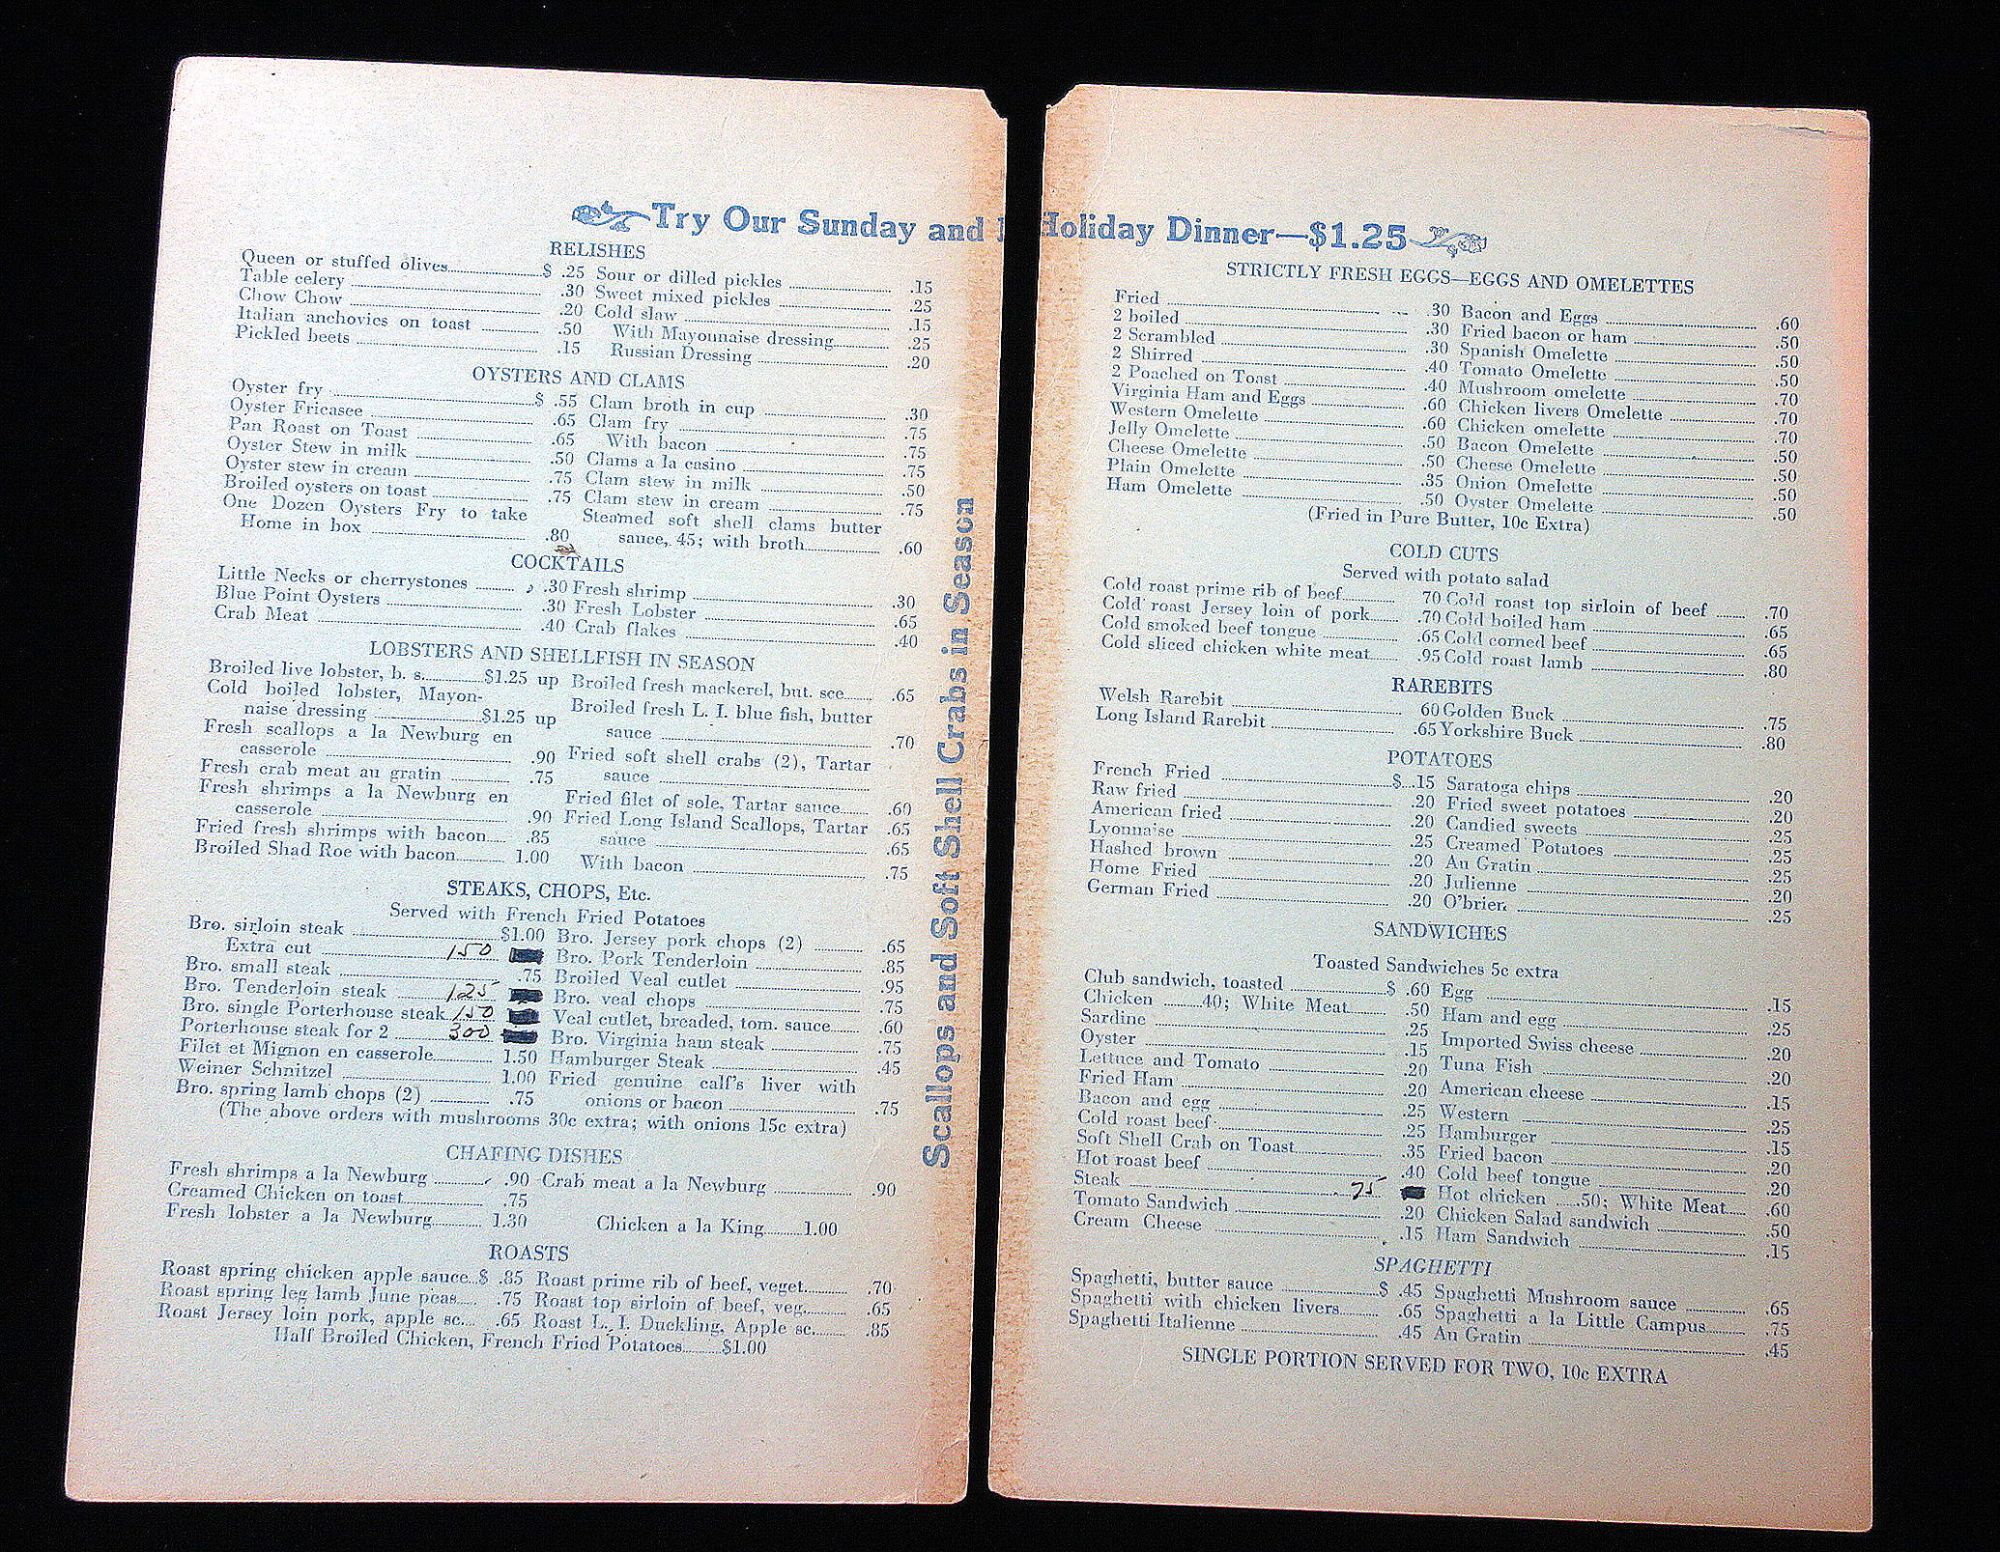 Try Our Sunday and Holiday Dinner—$1.25
RELISHES
Queen or stuffed olives $ .25
Table celery .30
Chow Chow .20
Italian anchovies on toast .50
Pickled beets .15
Sour or dilled pickles .15
Sweet mixed pickles .25
Cold slaw .15
With Mayonnaise dressing .25
Russian Dressing .20
OYSTERS AND CLAMS
Oyster fry $ .55
Oyster Fricasee .65
Pan Roast on Toast .65
Oyster Stew in milk .50
Oyster stew in cream .75
Broiled oysters on toast .75
One Dozen Oysters Fry to take
Home in box .80
Clam broth in cup .30
Clam fry .75
With bacon .75
Clams a la casino .75
Clam stew in milk .50
Clam stew in cream .75
Steamed soft shell clams butter
sauce, 45; with broth .60
COCKTAILS
Little Necks or cherrystones .30
Blue Point Oysters .30
Crab Meat .40
Fresh shrimp .30
Fresh Lobster .65
Crab flakes .40
LOBSTERS AND SHELLFISH IN SEASON
Broiled live lobster, b. s. $1.25 up
Cold boiled lobster, Mayon-
naise dressing $1.25 up
Fresh scallops a la Newburg en
casserole .90
Fresh crab meat au gratin .75
Fresh shrimps a la Newburg en
casserole .90
Fried fresh shrimps with bacon .85
Broiled Shad Roe with bacon 1.00
Broiled fresh mackerel, but. sce .65
Broiled fresh L. I. blue fish, butter
sauce .70
Fried soft shell crabs (2), Tartar
sauce .60
Fried filet of sole, Tartar sauce .65
Fried Long Island Scallops, Tartar
sauce .65
With bacon .75
STEAKS, CHOPS, Etc.
Served with French Fried Potatoes
Bro. sirloin steak $1.00
Extra cut 150
Bro. small steak .75
Bro. Tenderloin steak 125
Bro. single Porterhouse steak 150
Porterhouse steak for 2 300
Filet et Mignon en casserole 1.50
Weiner Schnitzel 1.00
Bro. spring lamb chops (2) .75
Bro. Jersey pork chops (2) .65
Bro. Pork Tenderloin .85
Broiled Veal cutlet .95
Bro. veal chops .75
Veal cutlet, breaded, tom. sauce .60
Bro. Virginia ham steak .75
Hamburger Steak .45
Fried genuine calf's liver with
onions or bacon .75
(The above orders with mushrooms 30c extra; with onions 15c extra)
CHAFING DISHES
Fresh shrimps a la Newburg .90
Creamed Chicken on toast .75
Fresh lobster a la Newburg 1.30
Crab meat a la Newburg .90
Chicken a la King 1.00
ROASTS
Roast spring chicken apple sauce $ .85
Roast spring leg lamb June peas .75
Roast Jersey loin pork, apple sc. .65
Roast prime rib of beef, veget. .70
Roast top sirloin of beef, veg. .65
Roast L. I. Duckling, Apple sc. .85
Half Broiled Chicken, French Fried Potatoes $1.00
Scallops and Soft Shell Crabs in Season
STRICTLY FRESH EGGS—EGGS AND OMELETTES
Fried .30
2 boiled .30
2 Scrambled .30
2 Shirred .40
2 Poached on Toast .40
Virginia Ham and Eggs .60
Western Omelette .60
Jelly Omelette .50
Cheese Omelette .50
Plain Omelette .35
Ham Omelette .50
Bacon and Eggs .60
Fried bacon or ham .50
Spanish Omelette .50
Tomato Omelette .50
Mushroom omelette .70
Chicken livers Omelette .70
Chicken omelette .70
Bacon Omelette .50
Cheese Omelette .50
Onion Omelette .50
Oyster Omelette .50
(Fried in Pure Butter, 10c Extra)
COLD CUTS
Served with potato salad
Cold roast prime rib of beef 70
Cold roast Jersey loin of pork .70
Cold smoked beef tongue .65
Cold sliced chicken white meat .95
Cold roast top sirloin of beef .70
Cold boiled ham .65
Cold corned beef .65
Cold roast lamb .80
RAREBITS
Welsh Rarebit 60
Long Island Rarebit .65
Golden Buck .75
Yorkshire Buck .80
POTATOES
French Fried $ .15
Raw fried .20
American fried .20
Lyonnaise .25
Hashed brown .20
Home Fried .20
German Fried .20
Saratoga chips .20
Fried sweet potatoes .20
Candied sweets .25
Creamed Potatoes .25
Au Gratin .25
Julienne .20
O'brien .25
SANDWICHES
Toasted Sandwiches 5c extra
Club sandwich, toasted $ .60
Chicken .40; White Meat .50
Sardine .25
Oyster .15
Lettuce and Tomato .20
Fried Ham .20
Bacon and egg .25
Cold roast beef .25
Soft Shell Crab on Toast .35
Hot roast beef .40
Steak 75
Tomato Sandwich .20
Cream Cheese .15
Egg .15
Ham and egg .25
Imported Swiss cheese .20
Tuna Fish .20
American cheese .15
Western .25
Hamburger .15
Fried bacon .20
Cold beef tongue .20
Hot chicken .50; White Meat .60
Chicken Salad sandwich .50
Ham Sandwich .15
SPAGHETTI
Spaghetti, butter sauce $ .45
Spaghetti with chicken livers .65
Spaghetti Italienne .45
Spaghetti Mushroom sauce .65
Spaghetti a la Little Campus .75
Au Gratin .45
SINGLE PORTION SERVED FOR TWO, 10c EXTRA